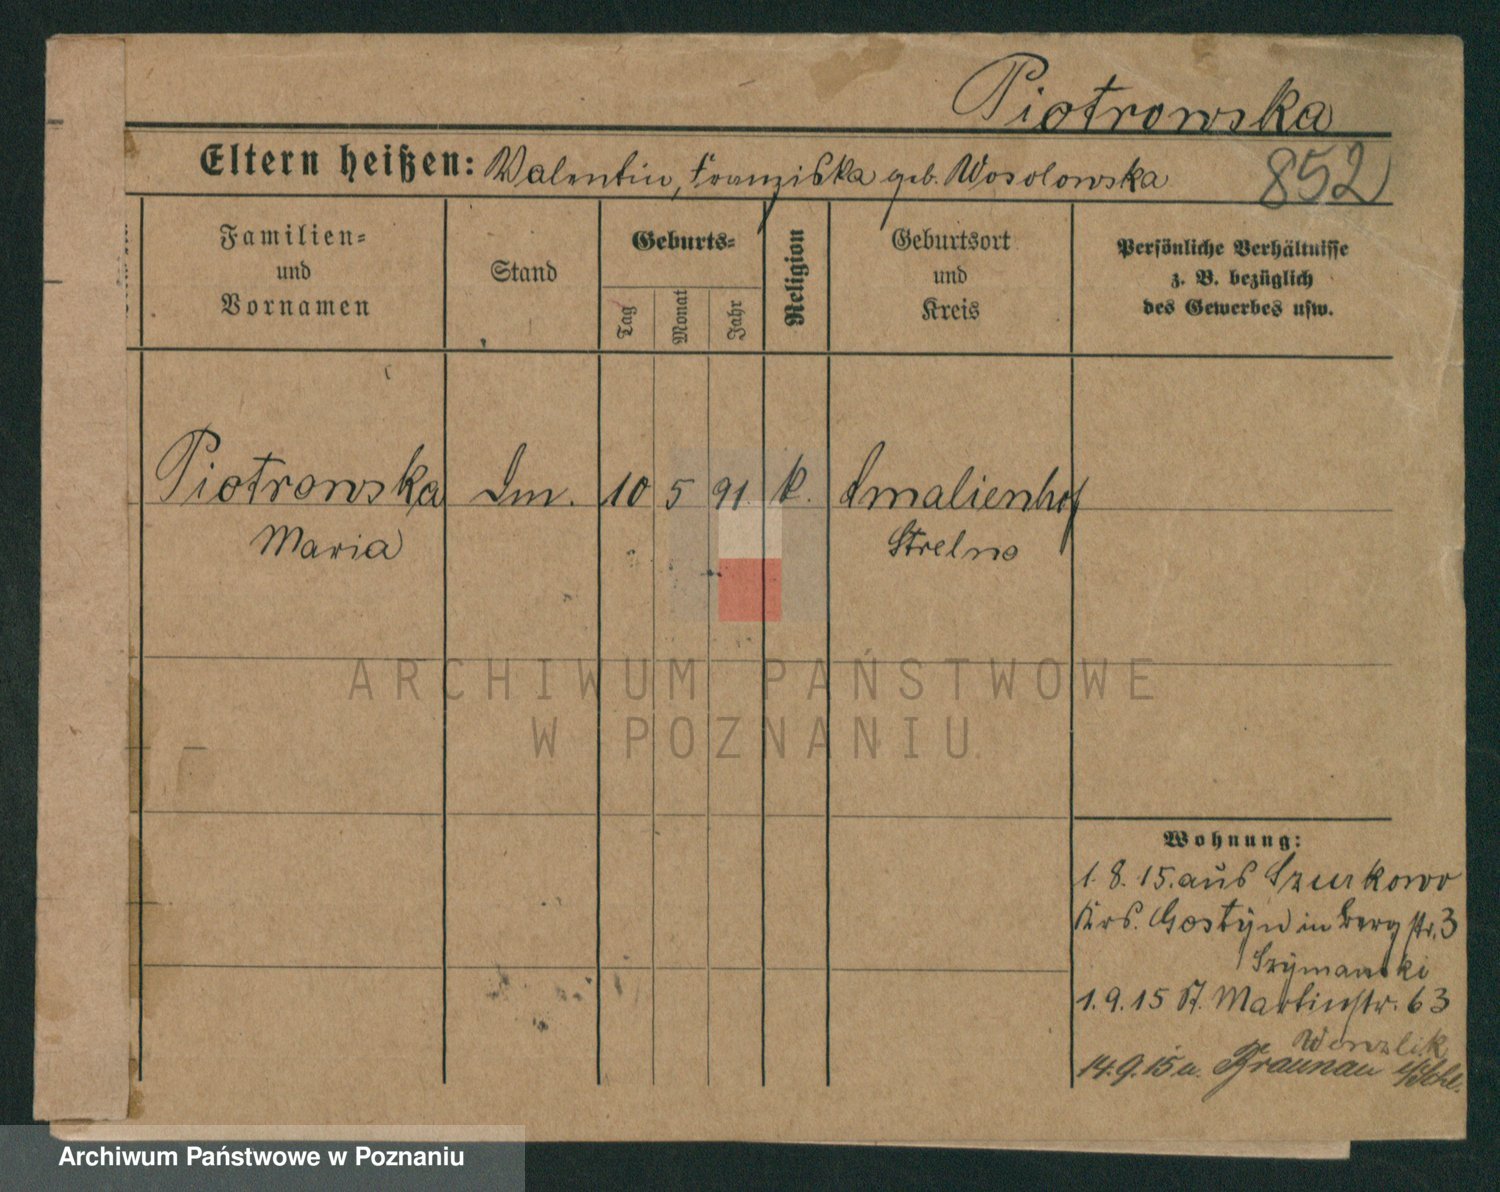 Piotrowska
852
Eltern heißen: Valentin, Franziska geb. Wosolowska
Familien-
und
Vornamen
Stand
Geburts-
Tag
Monat
Jahr
Religion
Geburtsort
und
Kreis
Persönliche Verhältnisse
z. B. bezüglich
des Gewerbes usw.
Piotrowska
Maria
10 5 91. k. Amalienhof
Strelno
ARCHIWUM PAŃSTWOWE
W POZNANIU
Wohnung:
1. 8. 15. aus Szurkowo
Krs. Gostÿn in Bergstr. 3
Szÿmanski
1. 9. 15 St. Martinstr. 63
Wenzlik
14. 9. 15 n. Braunau
Archiwum Państwowe w Poznaniu